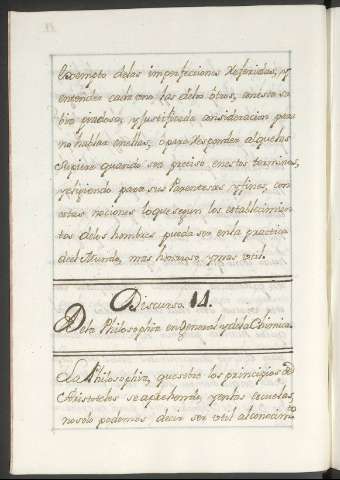 Exempto delas imperfecciones referidas, y
entender cada uno las delos otros, con esta so
bria piadosa, y justificada consideracion para
no hablar en ellas, ó para responder alque las
supiere quando sea preciso en estos terminos,
y eligiendo para sus Parentescos y fines, con
estas nociones lo que segun los establecimien
tos delos hombres pueda ser en la practica
del Mundo, mas honroso y mas util.
Discurso 14.
Dela Philosophia en General y dela Chimica.
La Philosophia, que sobre los principios de
Aristoteles se aprehende, y en las Escuelas,
no solo podemos decir ser util al conocim.to